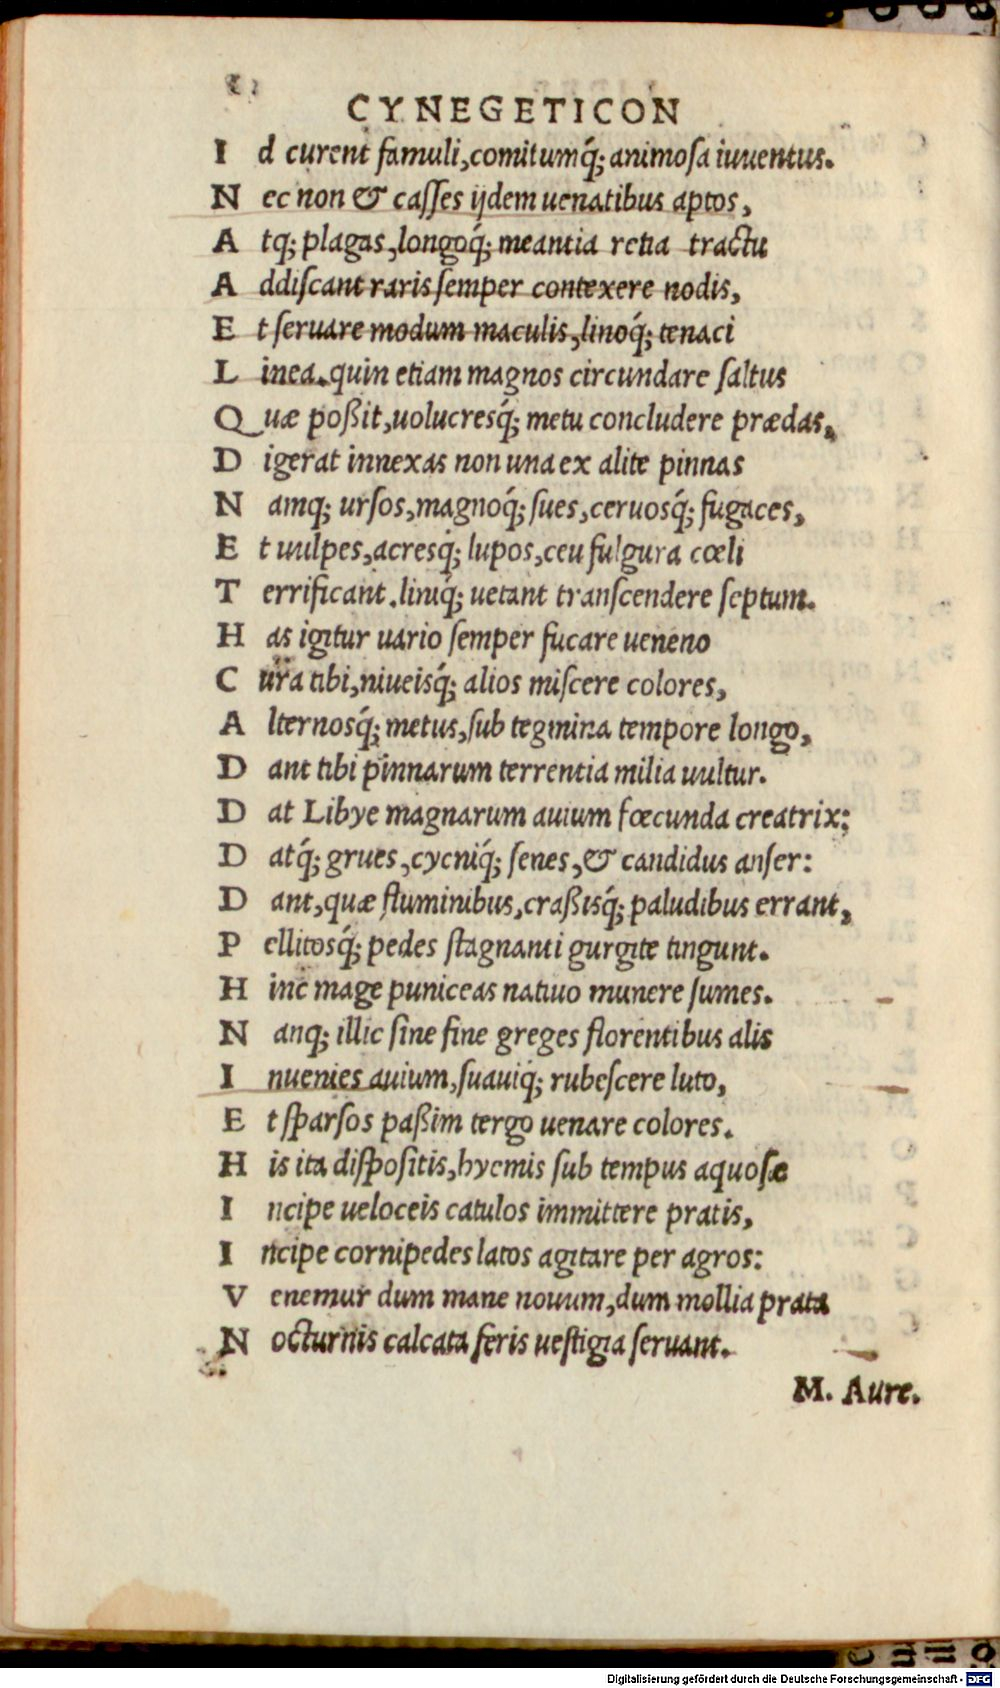 CYNEGETICON
Id curent famuli, comitumq́; animosa iuuentus.
Nec non & casses ijdem uenatibus aptos,
Atq; plagas, longoq́; meantia retia tractu
Addiscant raris semper contexere nodis,
Et seruare modum maculis, linoq́; tenaci
Linea. quin etiam magnos circundare saltus
Quæ poßit, uolucresq́; metu concludere prædas,
Digerat innexas non una ex alite pinnas
Namq; ursos, magnoq́; sues, ceruosq́; fugaces,
Et uulpes, acresq́; lupos, ceu fulgura cœli
Terrificant. liniq́; uetant transcendere septum.
Has igitur uario semper fucare ueneno
Cura tibi, niueisq́; alios miscere colores,
Alternosq́; metus, sub tegmina tempore longo,
Dant tibi pinnarum terrentia milia uultur.
Dat Libye magnarum auium fœcunda creatrix;
Datq́; grues, cycniq́; senes, & candidus anser:
Dant, quæ fluminibus, craßisq́; paludibus errant,
Pellitosq́; pedes stagnanti gurgite tingunt.
Hinc mage puniceas natiuo munere sumes.
Nanq; illic sine fine greges florentibus alis
Inuenies auium, suauiq́; rubescere luto,
Et sparsos paßim tergo uenare colores.
His ita dispositis, hyemis sub tempus aquosæ
Incipe ueloceis catulos immittere pratis,
Incipe cornipedes latos agitare per agros:
Venemur dum mane nouum, dum mollia prata
Nocturnis calcata feris uestigia seruant.
M. Aure.
Digitalisierung gefördert durch die Deutsche Forschungsgemeinschaft - DFG